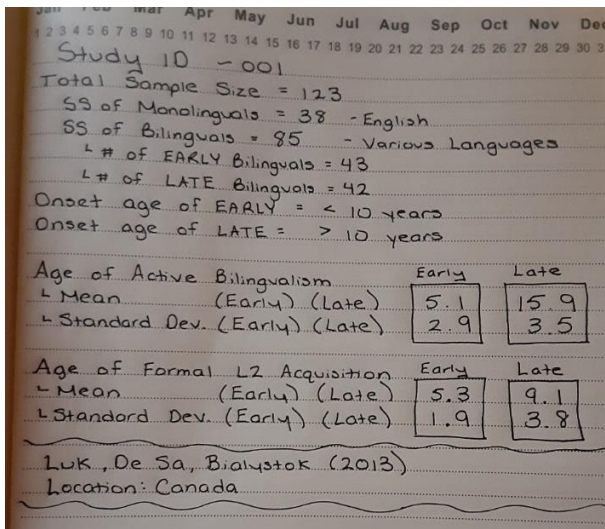 Jan Feb Mar Apr May Jun Jul Aug Sep Oct Nov Dec
1 2 3 4 5 6 7 8 9 10 11 12 13 14 15 16 17 18 19 20 21 22 23 24 25 26 27 28 29 30
Study ID - 001
Total Sample Size = 123
SS of Monolinguals = 38 - English
SS of Bilinguals = 85 - Various Languages
└ # of EARLY Bilinguals = 43
└ # of LATE Bilinguals = 42
Onset age of EARLY = < 10 years
Onset age of LATE = > 10 years
Age of Active Bilingualism Early Late
└ Mean (Early) (Late) 5.1 15.9
└ Standard Dev. (Early) (Late) 2.9 3.5
Age of Formal L2 Acquisition Early Late
└ Mean (Early) (Late) 5.3 9.1
└ Standard Dev. (Early) (Late) 1.9 3.8
Luk, De Sa, Bialystok (2013)
Location: Canada